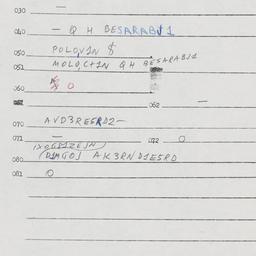 030 —
040 — Q H BESARABI1
050 POLOV1N $
051 MOLO,C+1N Q H BESARABI1
060 O
062 —
070 AVD3RE5RD2-
071 — 072 O
080 (D1MGO) AK3RND1E5RD
081 O